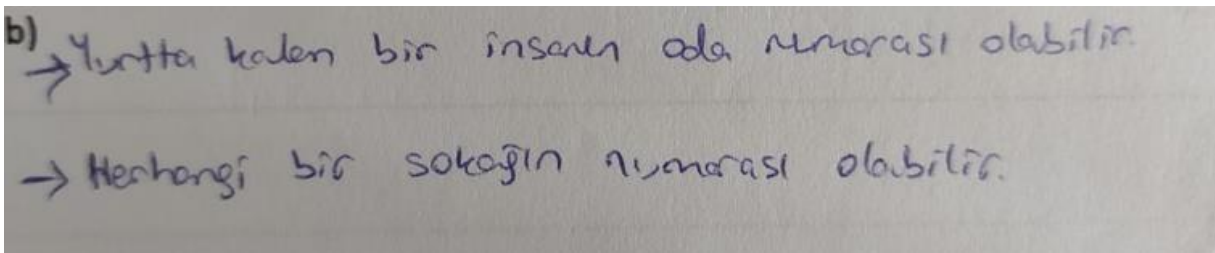 b)
→ Yurtta kalen bir insanın oda numarası olabilir.
→ Herhangi bir sokağın numarası olabilir.